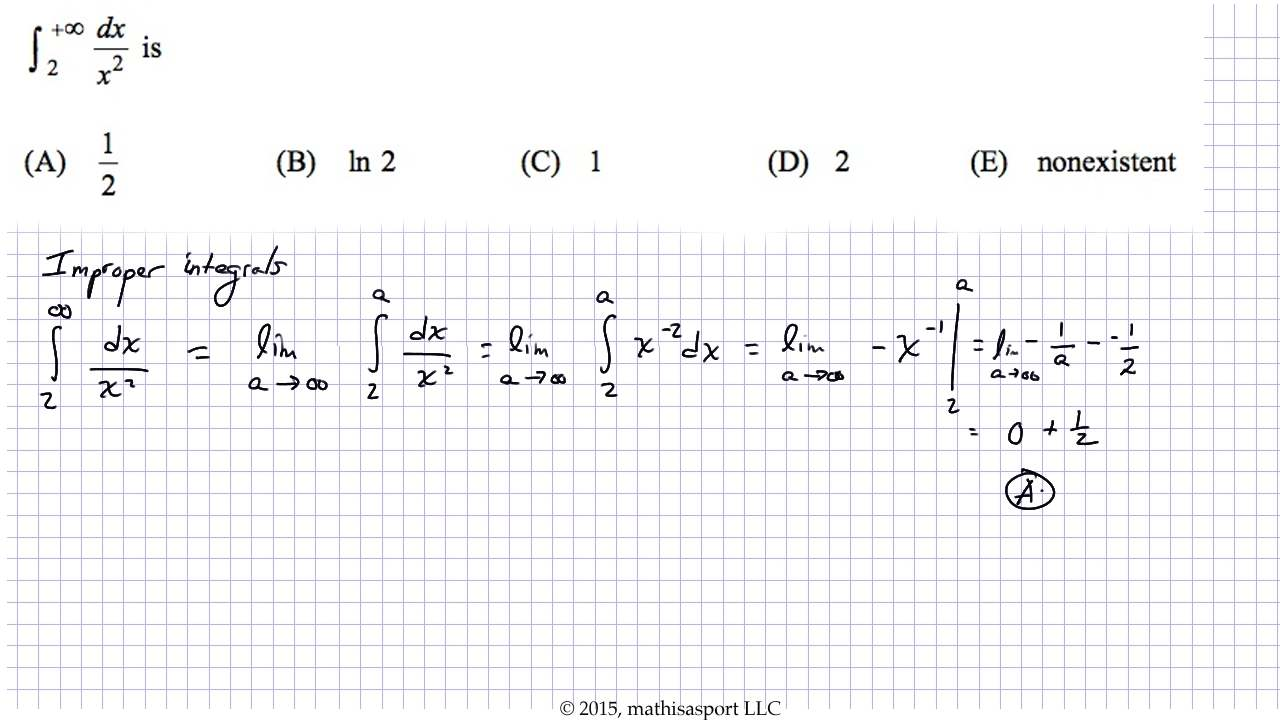 ∫₂^+∞ dx/x² is
(A) 1/2 (B) ln 2 (C) 1 (D) 2 (E) nonexistent
Improper integrals
∫₂^∞ dx/x² = lim a→∞ ∫₂^a dx/x² = lim a→∞ ∫₂^a x⁻² dx = lim a→∞ -x⁻¹ |₂^a = lim a→∞ -1/a - -1/2
= 0 + 1/2
A
© 2015, mathisasport LLC